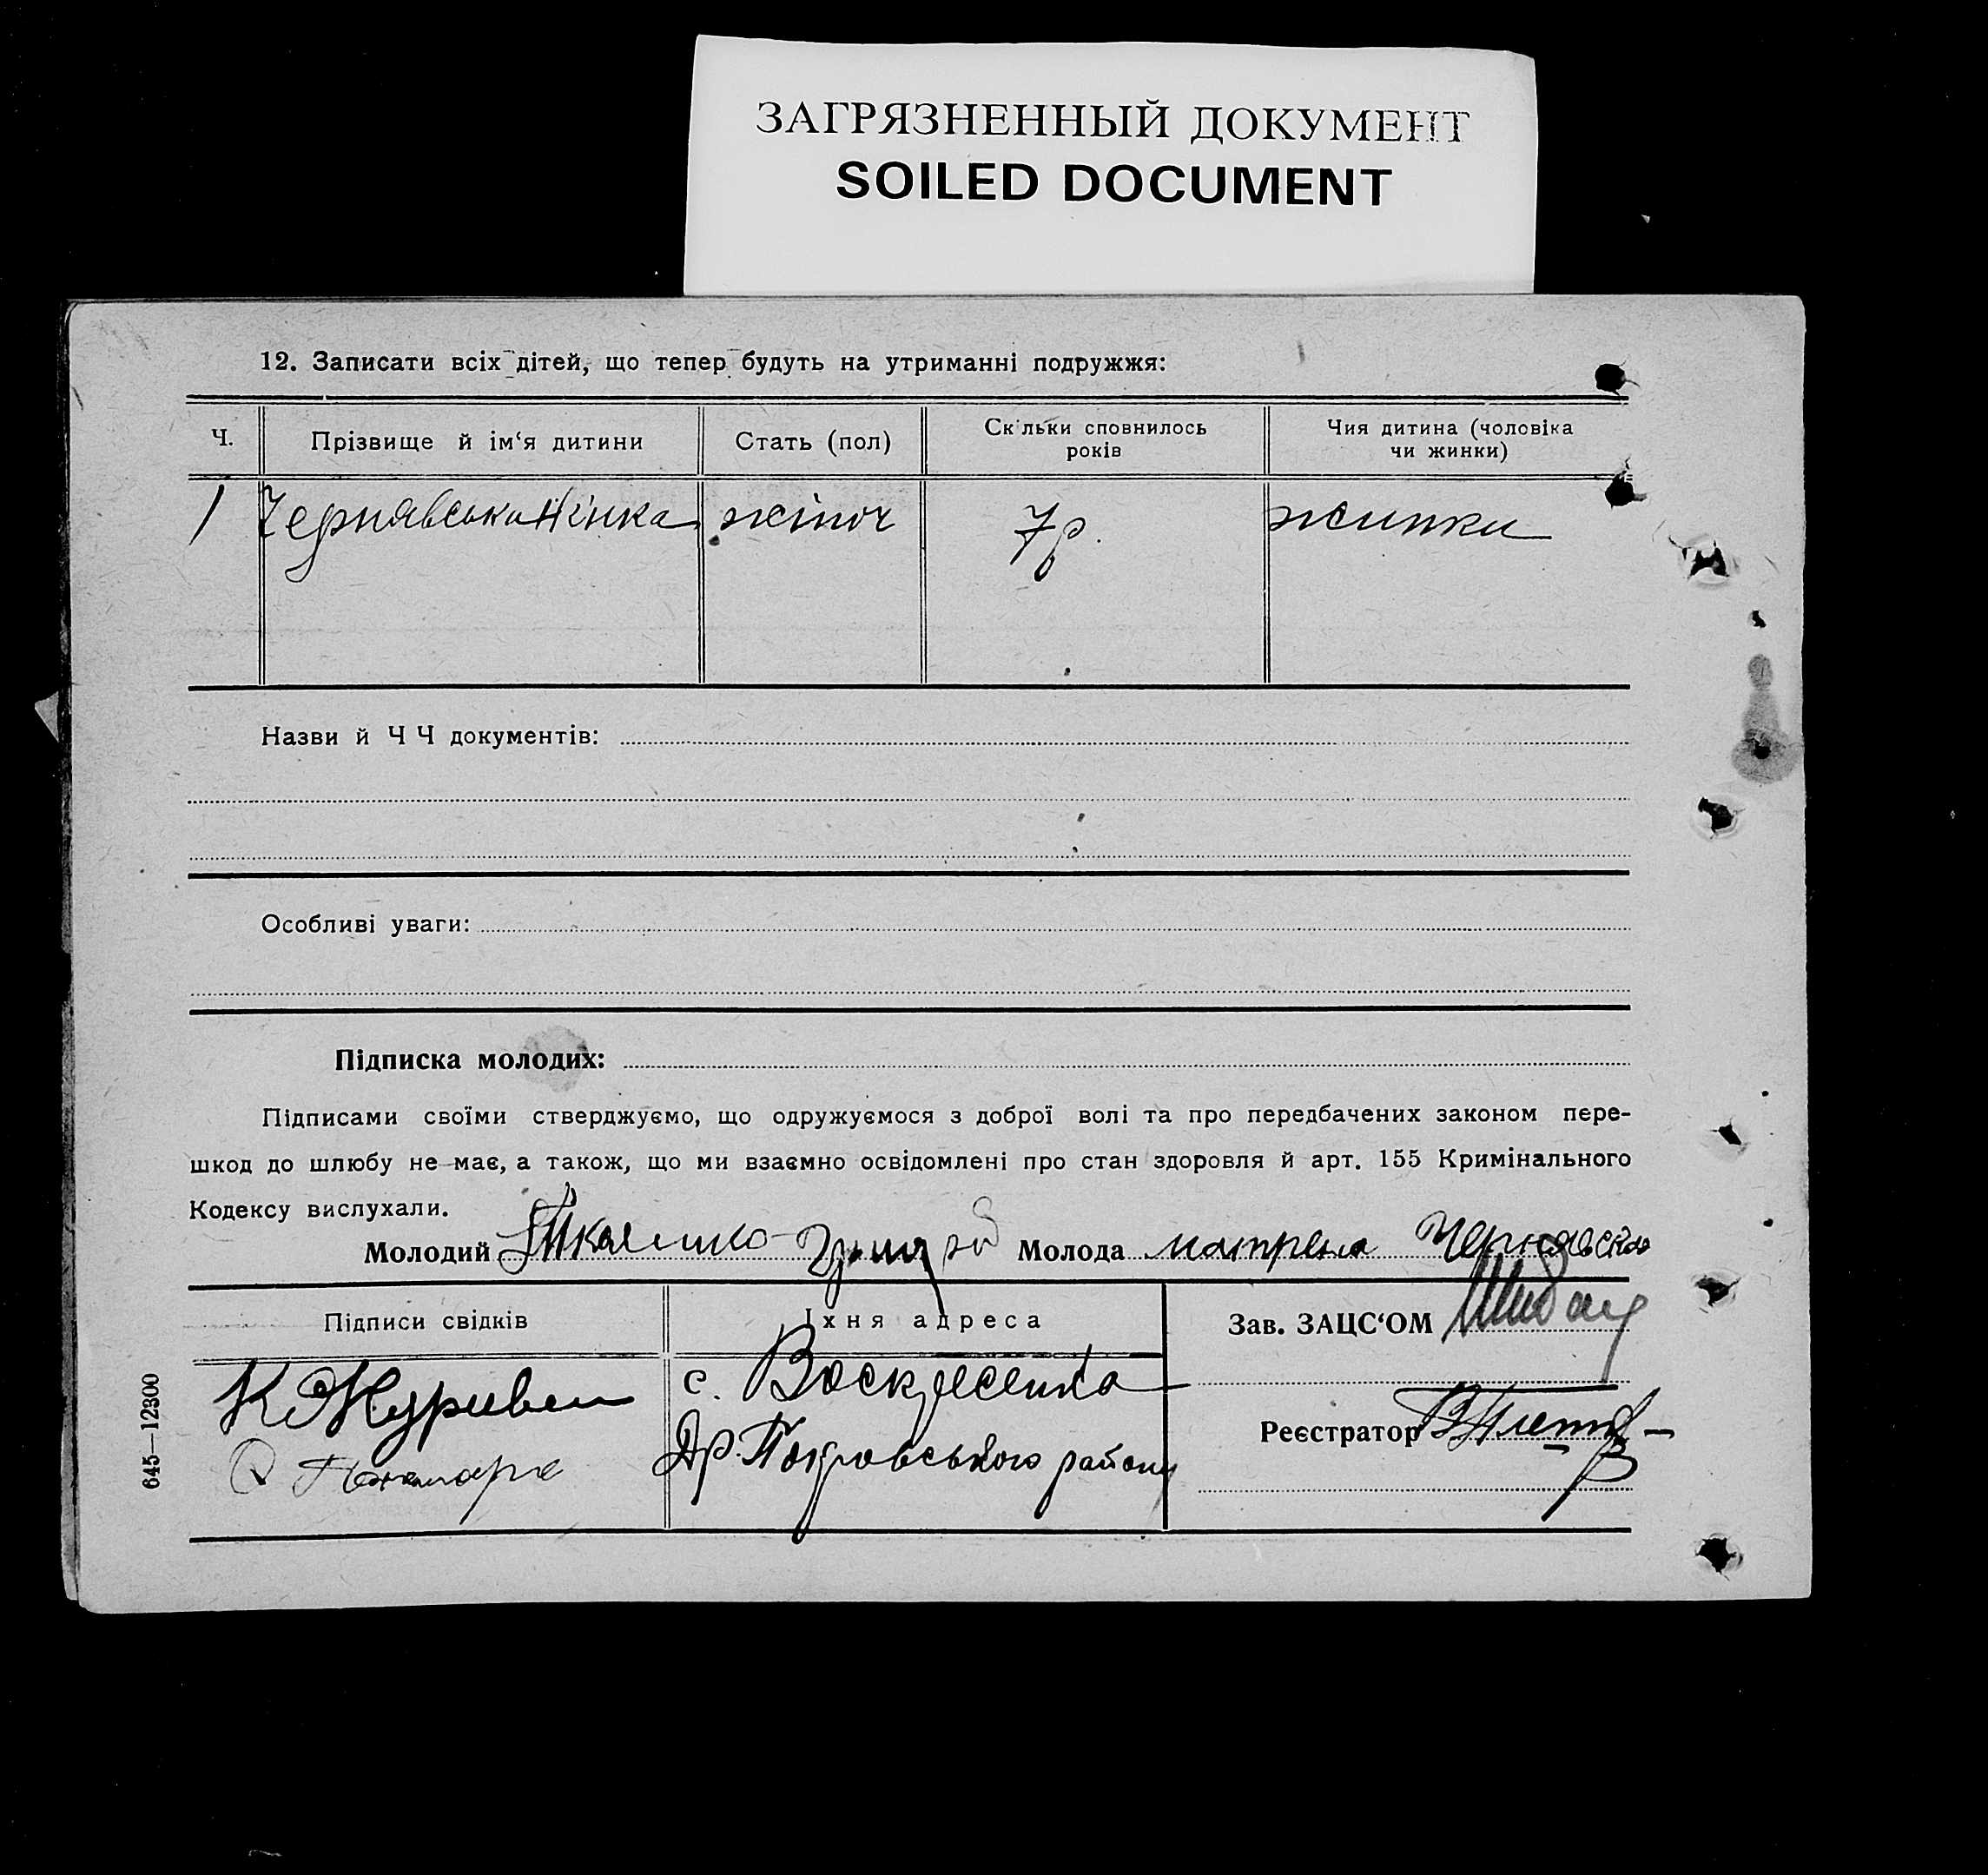 ЗАГРЯЗНЕННЫЙ ДОКУМЕНТ
SOILED DOCUMENT
12. Записати всіх дітей, що тепер будуть на утриманні подружжя:
Ч. Прізвище й ім‘я дитини Стать (пол) Скільки сповнилось років Чия дитина (чоловіка чи жинки)
1 Чернявська Нінка жіноч 7р. жинки
Назви й Ч Ч документів:
Особливі уваги:
Підписка молодих:
Підписами своїми стверджуємо, що одружуємося з доброї волі та про передбачених законом пере-
шкод до шлюбу не має, а також, що ми взаємно освідомлені про стан здоровля й арт. 155 Кримінального
Кодексу вислухали.
Молодий Молода матрена Чернявска
Підписи свідків Їхня адреса Зав. ЗАЦС‘ОМ
с. Воскресенка
Др. Покровського району
Реєстратор
645—12300